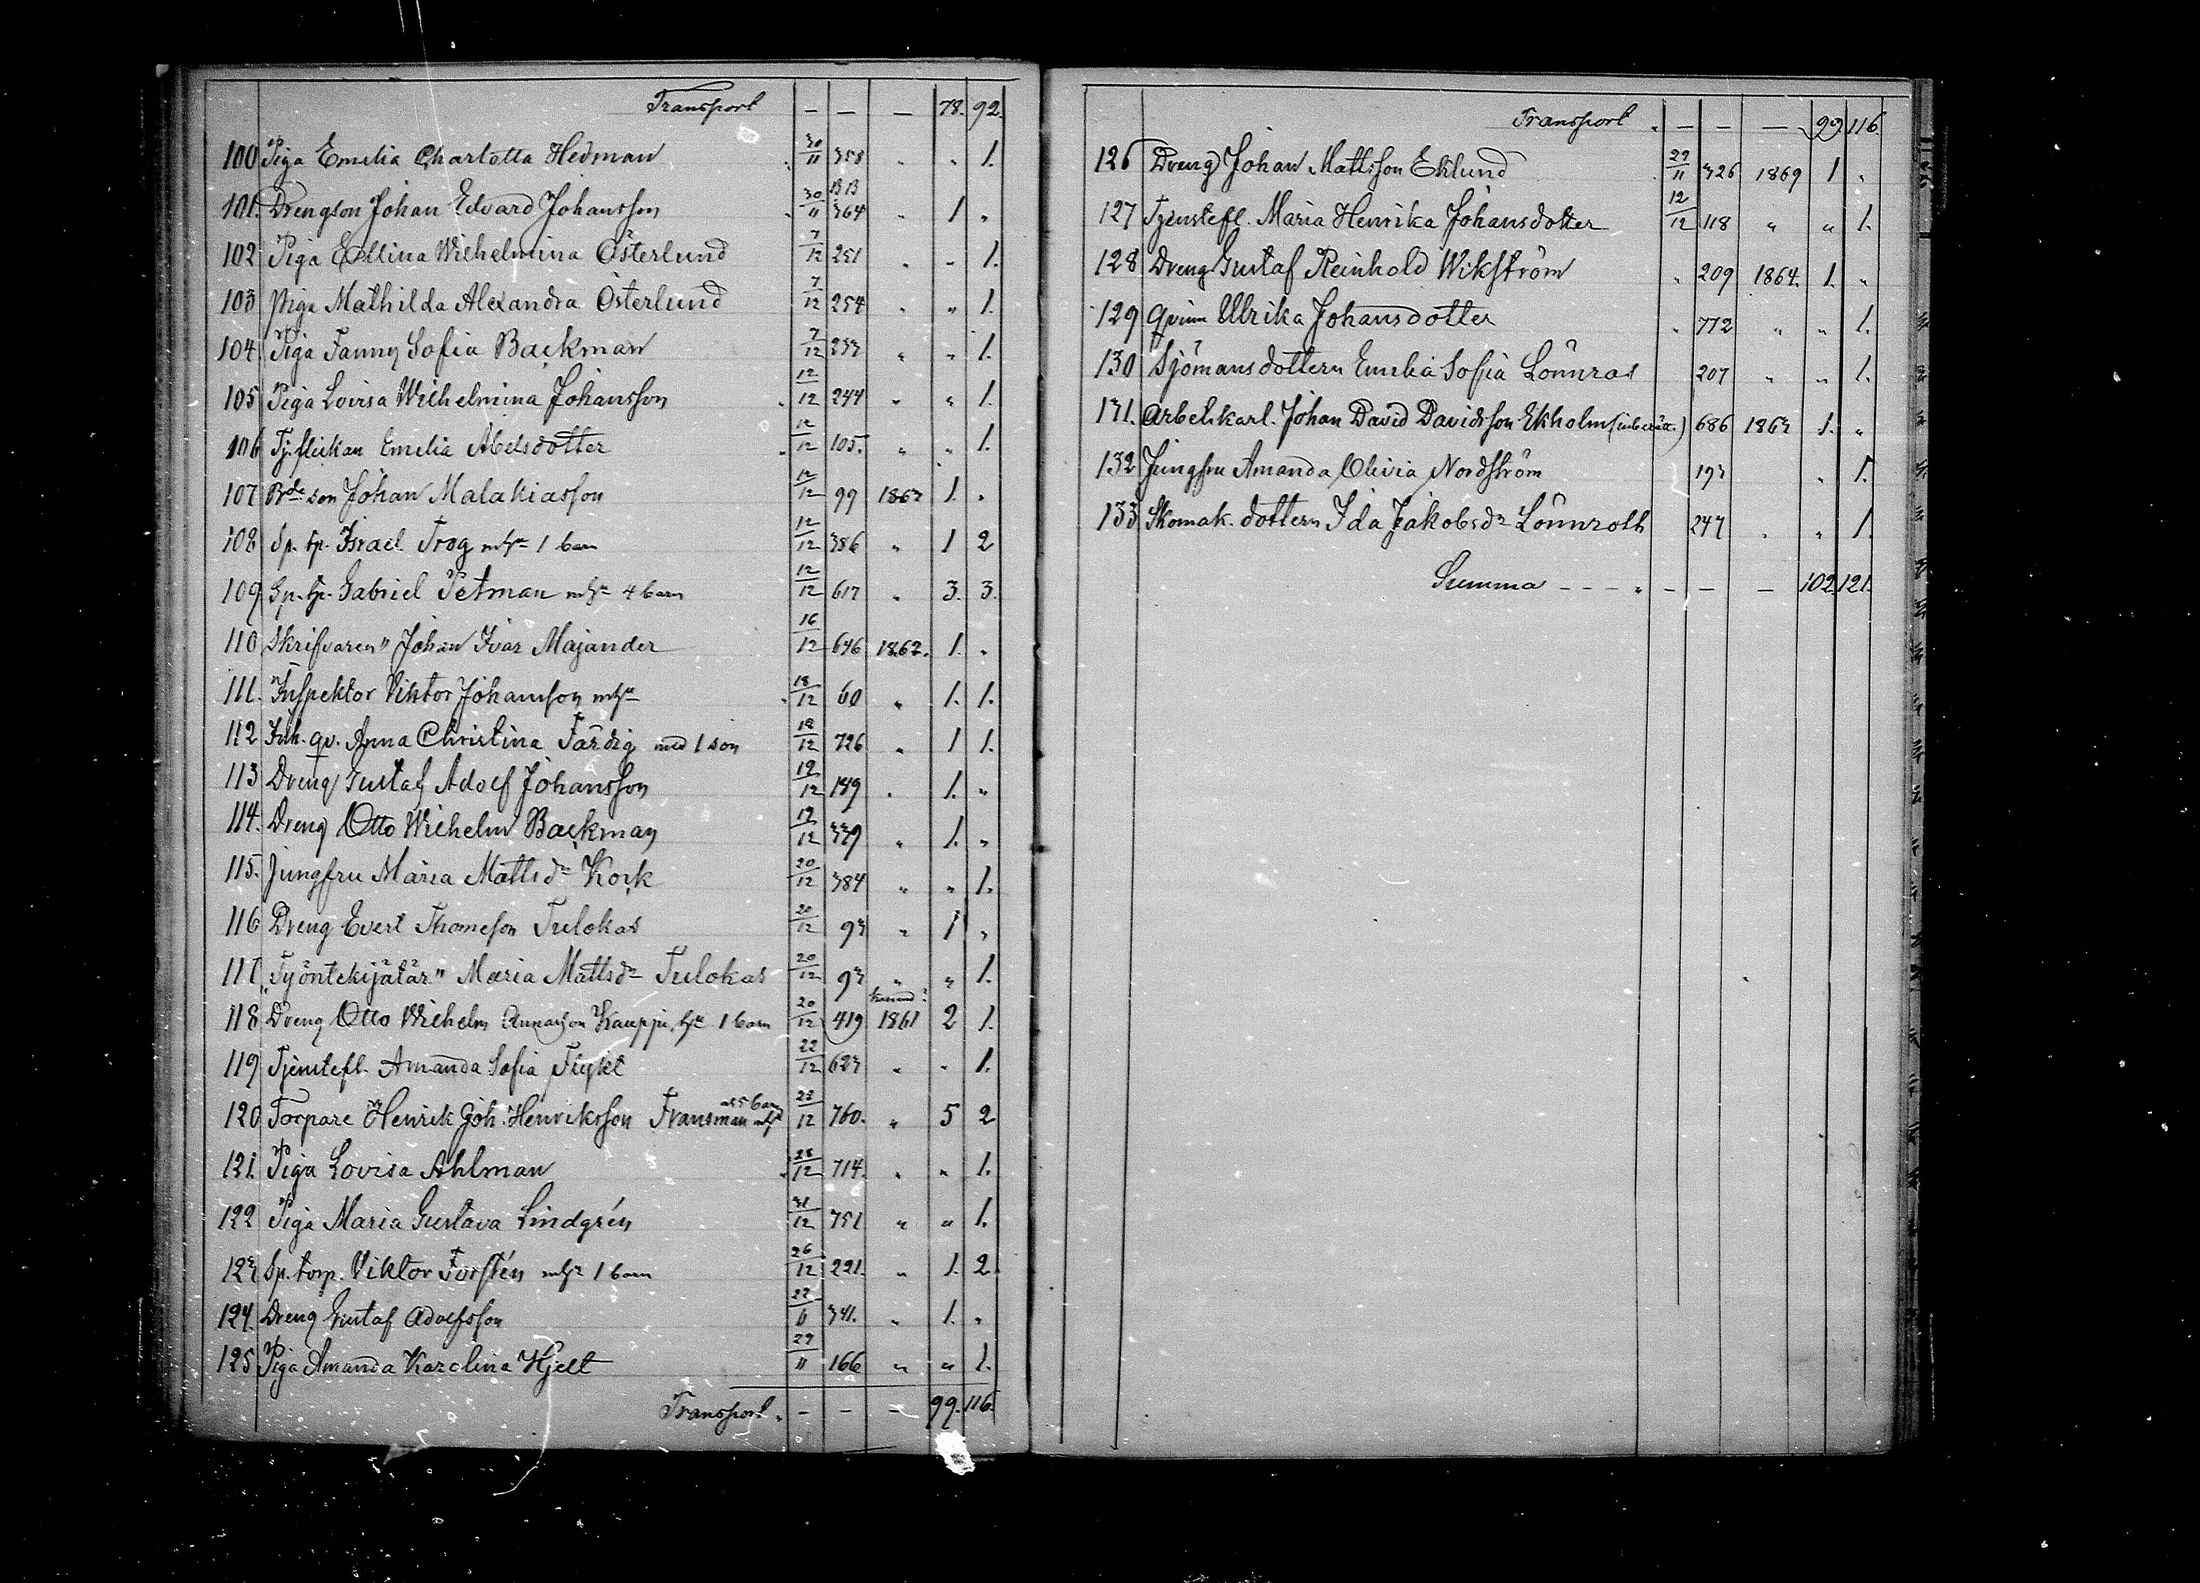 Transport — — — 78. 92.
100 Piga Emilia Charlotta Hedman 30/11 358 " " 1.
101. Drengson Johan Edvard Johansson 30/11 BB 364 " 1 "
102 Piga Ellina Wilhelmina Österlund 7/12 251 " " 1.
103 Piga Mathilda Alexandra Österlund 7/12 254 " " 1.
104 Piga Fanny Sofia Backman 7/12 233 " " 1.
105 Piga Lovisa Wilhelmina Johansson 12/12 244 " " 1.
106 Tj. flickan Emelia Abelsdotter 12/12 105. " " 1.
107 Bde son Johan Malakiasson 12/12 99 1863 1. "
108 Sp. tp. Israel Trog mhu 1 barn 12/12 386 " 1 2
109 Sp. tp. Gabriel Petman mhu 4 barn 12/12 617 " 3. 3.
110 Skrifvaren" Johan Ivar Majander 16/12 646 1862. 1. "
111. Inspektor Viktor Johansson mhu 18/12 60 " 1. 1.
112 Inh. qv. Anna Christina Färdig med 1 son 18/12 726 " 1 1.
113 Dreng Gustaf Adolf Johansson 19/12 149 " 1. "
114. Dreng Otto Wilhelm Backman 19/12 339 " 1. "
115. Jungfru Maria Mattsdr Kock 20/12 384 " " 1.
116 Dreng Evert Thomeson Tulokas 20/12 93 " 1 "
117 "Työntekijätär" Maria Mattsdr Tulokas 20/12 93 " " 1.
118 Dreng Otto Wilhelm Kauppi, hu 1 barn 20/12 419 1861 2 1.
119 Tjenstefl. Amanda Sofia Flykt 22/12 623 " " 1.
120 Torpare Henrik Joh. Henriksson Fransman mhu o 5 barn 23/12 760. " 5 2
121. Piga Lovisa Ahlman 28/12 714. " " 1.
122 Piga Maria Gustava Lindgrén 31/12 751 " " 1.
123 Sp. torp. Viktor Forstén mhu 1 barn 26/12 221. " 1. 2
124. Dreng Gustaf Adolfsson 22/6 341. " 1. "
125 Piga Amanda Karolina Hjelt 29/11 166 " " 1.
Transport. — — — 99. 116.
Transport. — — — 99 116.
126 Dreng Johan Mattsson Eklund 29/11 326 1869 1 "
127 Tjenstefl. Maria Henrika Johansdotter 12/12 118 " " 1.
128 Dreng Gustaf Reinhold Wikström " 209 1864. 1. "
129 Qvinn Ulrika Johansdotter " 772 " " 1.
130 Sjömansdottern Emelia Sofia Lönnros 207 " " 1.
131. Arbetskarl. Johan David Davidsson Ekholm 686 1863 1. "
132 Jungfru Amanda Olivia Nordström 193 " 1.
133 Skomak. dottern Ida Jakobsdr Lönnroth 247 " " 1.
Summa — — — " — — — 102 121.